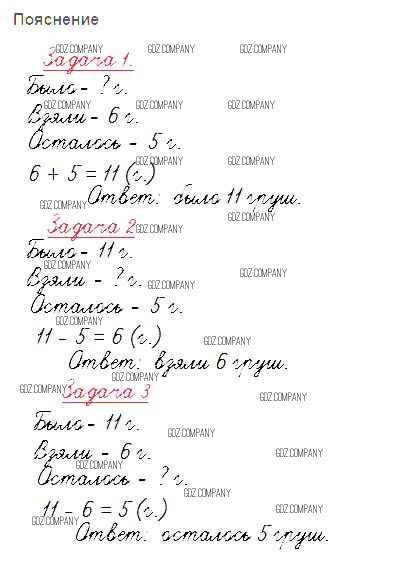 Пояснение
GDZ.COMPANY GDZ.COMPANY GDZ.COMPANY
Задача 1.
Было - ? г.
GDZ.COMPANY GDZ.COMPANY GDZ.COMPANY
Взяли - 6 г.
Осталось - 5 г.
GDZ.COMPANY GDZ.COMPANY
6 + 5 = 11 (г.)
Ответ: было 11 груш.
GDZ.COMPANY
GDZ.COMPANY
Задача 2
GDZ.COMPANY
Было - 11 г.
GDZ.COMPANY GDZ.COMPANY
Взяли - ? г.
GDZ.COMPANY
Осталось - 5 г.
GDZ.COMPANY
11 - 5 = 6 (г.)
GDZ.COMPANY
Ответ: взяли 6 груш.
GDZ.COMPANY
GDZ.COMPANY Задача 3
GDZ.COMPANY
Было - 11 г.
GDZ.COMPANY
Взяли - 6 г.
GDZ.COMPANY
GDZ.COMPANY
Осталось - ? г.
GDZ.COMPANY
11 - 6 = 5 (г.)
GDZ.COMPANY
GDZ.COMPANY
Ответ: осталось 5 груш.